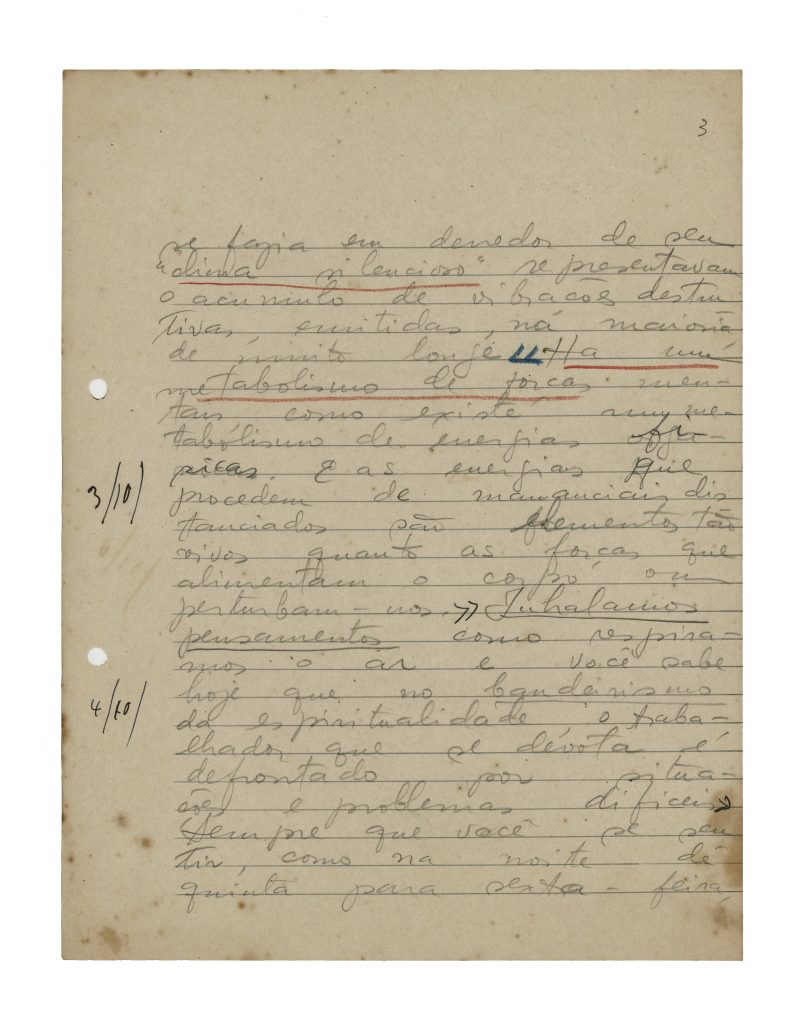 3
se fazia em derredor de seu
"clima silencioso" representavam
o acumulo de vibracões destru
tivas, emitidas, na maioria
de muito longe. Ha um
metabolismo de forças men-
tais como existe num me-
tabólismo de energias
sicas. E as energias que
3/10/
procedem de mananciais dis
tanciados são elementos tão
vivos quanto as forças que
alimentam o corpo ou
perturbam-nos. Inhalamos
pensamentos como respira-
mos o ar e você sabe
4/10/
hoje que no bandeirismo
da espiritualidade o traba-
lhador que se devota é
defrontado por situa-
ções e problemas dificeis
Sempre que você se sen
tir, como na noite de
quinta para sexta-feira,